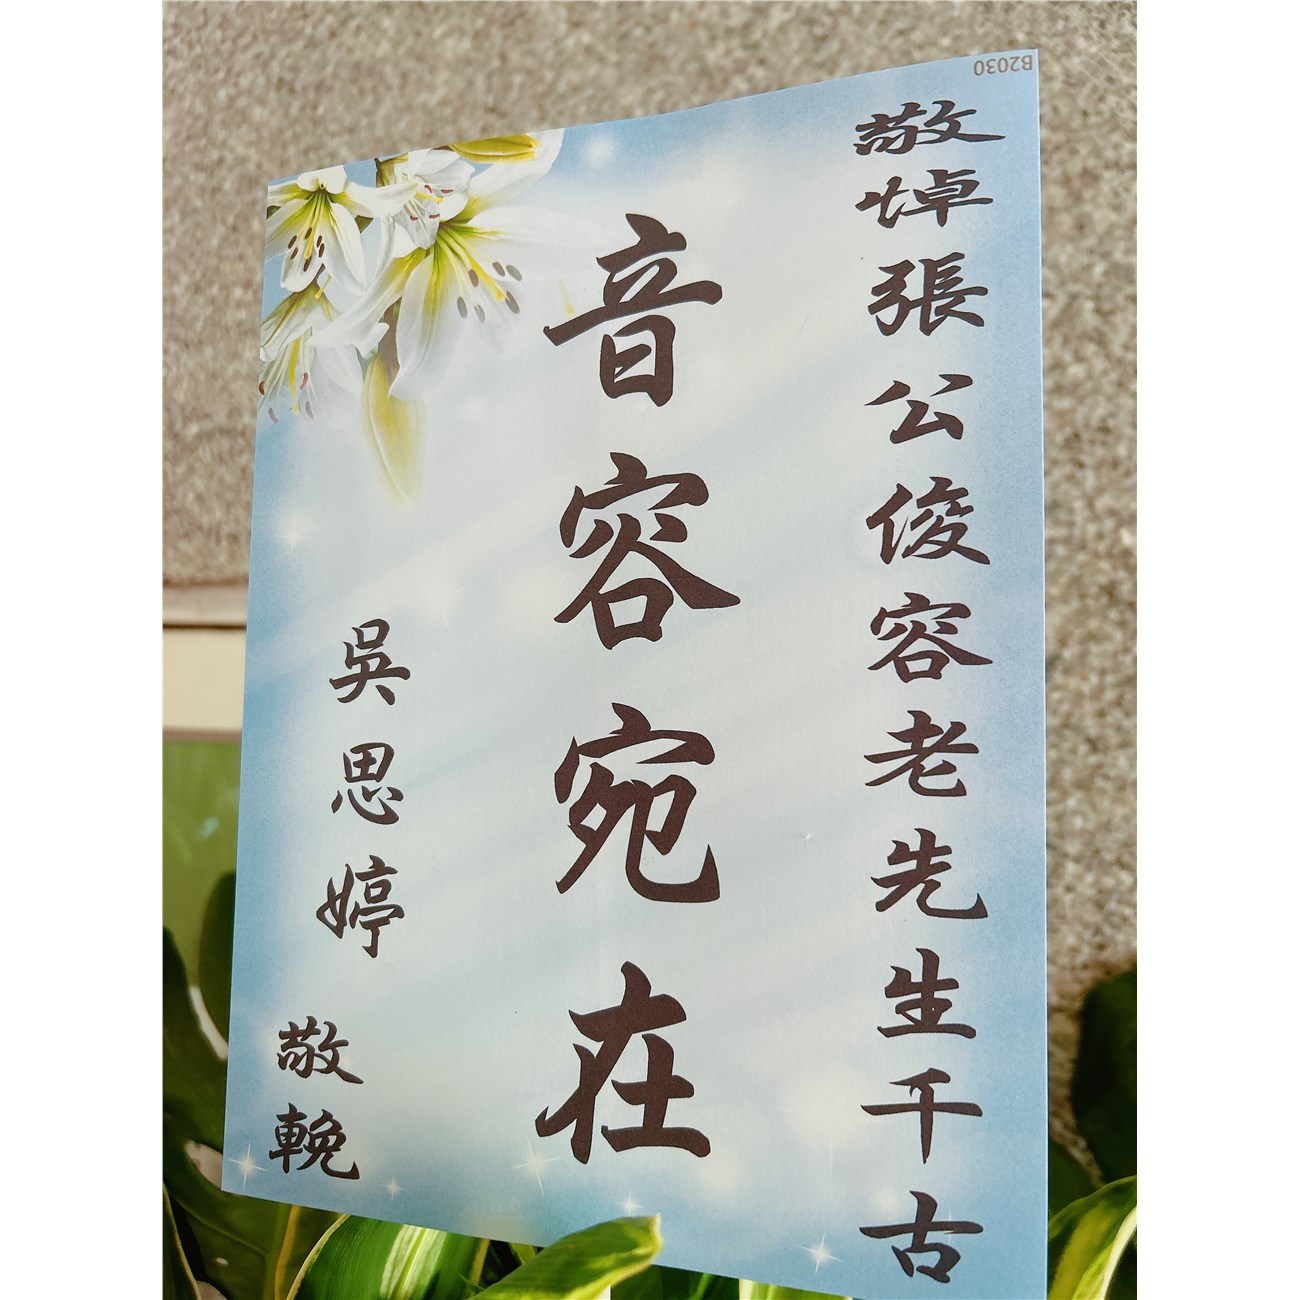 B2030
敬悼張公俊容老先生千古
音容宛在
吳思婷
敬輓